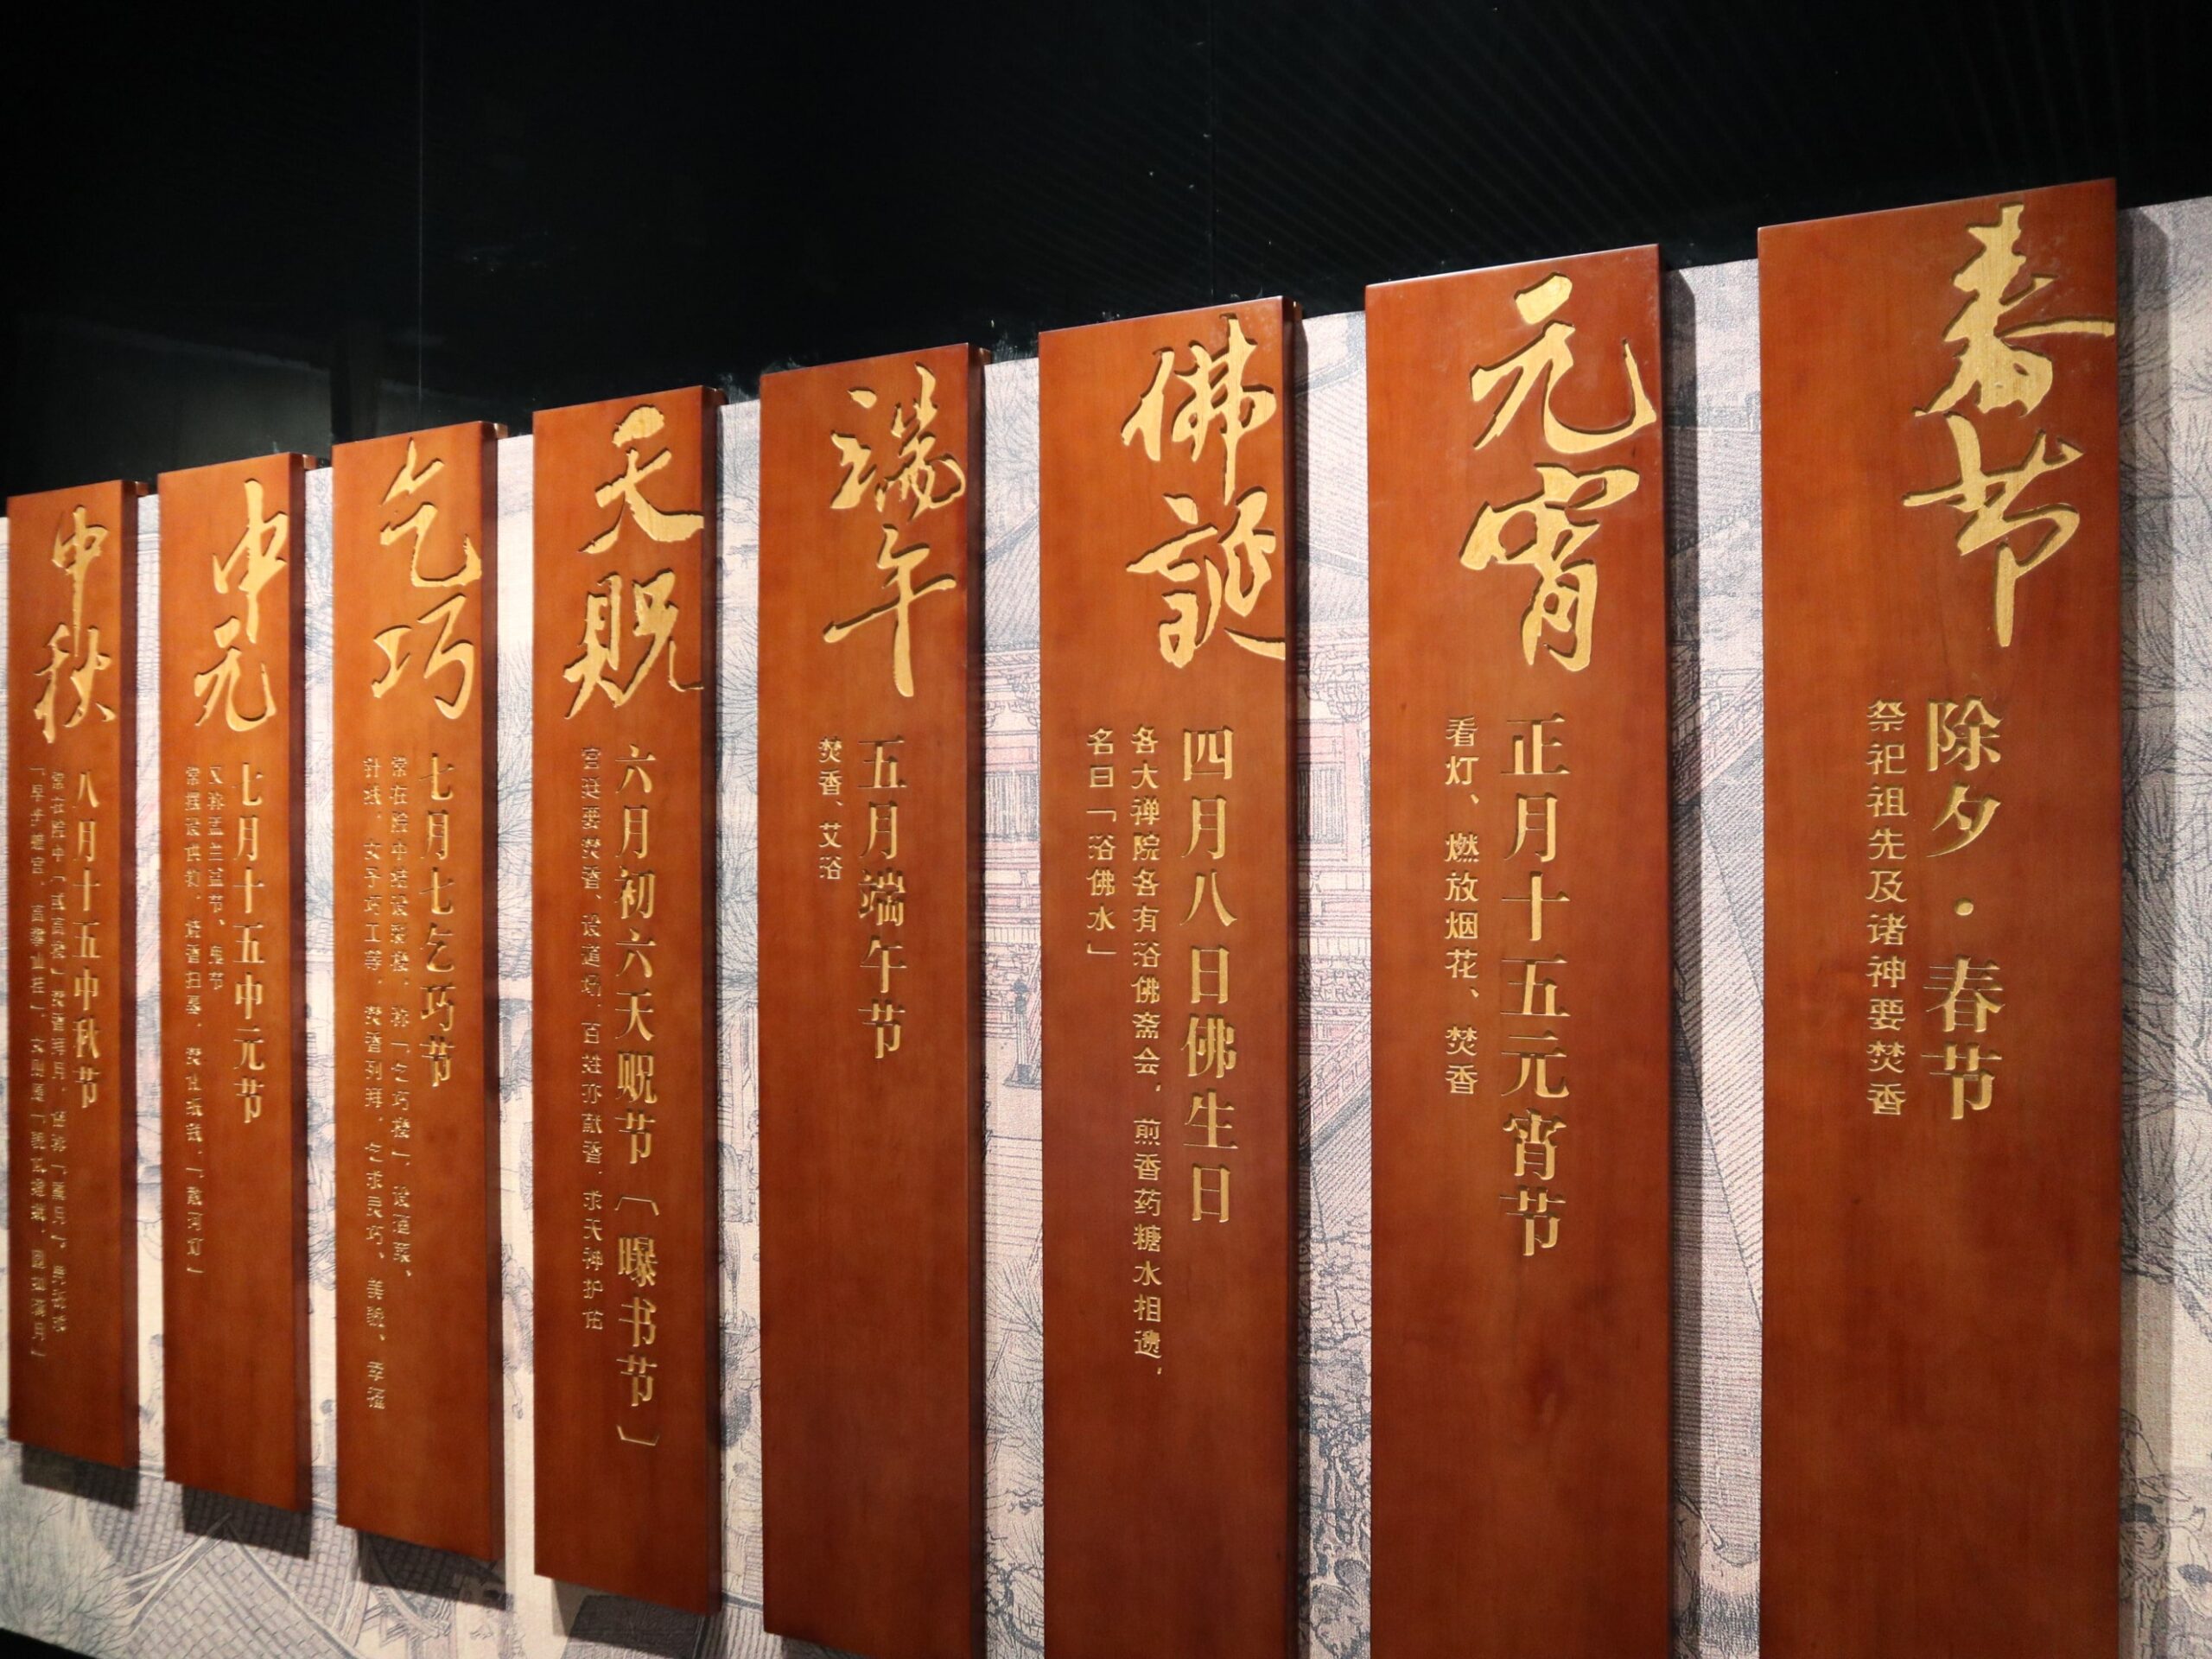 春节
除夕·春节
祭祀祖先及诸神要焚香
元宵
正月十五元宵节
看灯、燃放烟花、焚香
佛誕
四月八日佛生日
各大禅院各有浴佛斋会，煎香药糖水相遗，
名曰「浴佛水」
端午
五月端午节
焚香、艾浴
天贶
六月初六天贶节〔曝书节〕
宫廷要焚香、设道场，百姓亦献香，求天神护佑
乞巧
七月七乞巧节
常在院中结设彩楼，称「乞巧楼」，设酒菜、
针线，女子巧工等，焚香列拜，乞求灵巧、美貌、幸福
中元
七月十五中元节
又称盂兰盆节、鬼节
常摆设供物，烧香扫墓，焚化纸钱，「放河灯」
中秋
八月十五中秋节